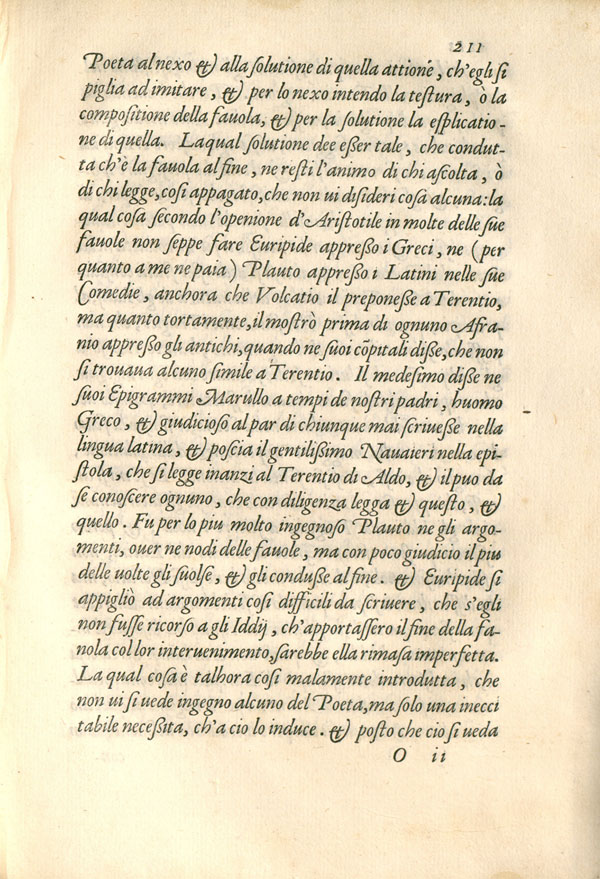 211
Poeta al nexo & alla solutione di quella attione, ch'egli si
piglia ad imitare, & per lo nexo intendo la testura, ò la
compositione della fauola, & per la solutione la esplicatio-
ne di quella. Laqual solutione dee eßer tale, che condut-
ta ch'è la fauola al fine, ne resti l'animo di chi ascolta, ò
di chi legge, cosi appagato, che non ui disideri cosa alcuna: la
qual cosa secondo l'openione d'Aristotile in molte delle sue
fauole non seppe fare Euripide appreßo i Greci, ne (per
quanto a me ne paia) Plauto appreßo i Latini nelle sue
Comedie, anchora che Volcatio il preponeße a Terentio,
ma quanto tortamente, il mostrò prima di ognuno Afra-
nio appreßo gli antichi, quando ne suoi cõpitali diße, che non
si trouaua alcuno simile a Terentio. Il medesimo diße ne
suoi Epigrammi Marullo a tempi de nostri padri, huomo
Greco, & giudicioso al par di chiunque mai scriueße nella
lingua latina, & poscia il gentilißimo Nauaieri nella epi-
stola, che si legge inanzi al Terentio di Aldo, & il puo da
se conoscere ognuno, che con diligenza legga & questo, &
quello. Fu per lo piu molto ingegnoso Plauto ne gli argo-
menti, ouer ne nodi delle fauole, ma con poco giudicio il piu
delle uolte gli suolse, & gli conduße al fine. & Euripide si
appigliò ad argomenti cosi difficili da scriuere, che s'egli
non fusse ricorso a gli Iddij, ch'apportassero il fine della fa-
uola col lor interuenimento, sarebbe ella rimasa imperfetta.
La qual cosa è talhora cosi malamente introdutta, che
non ui si uede ingegno alcuno del Poeta, ma solo una inecci
tabile neceßita, ch'a cio lo induce. & posto che cio si ueda
O ii